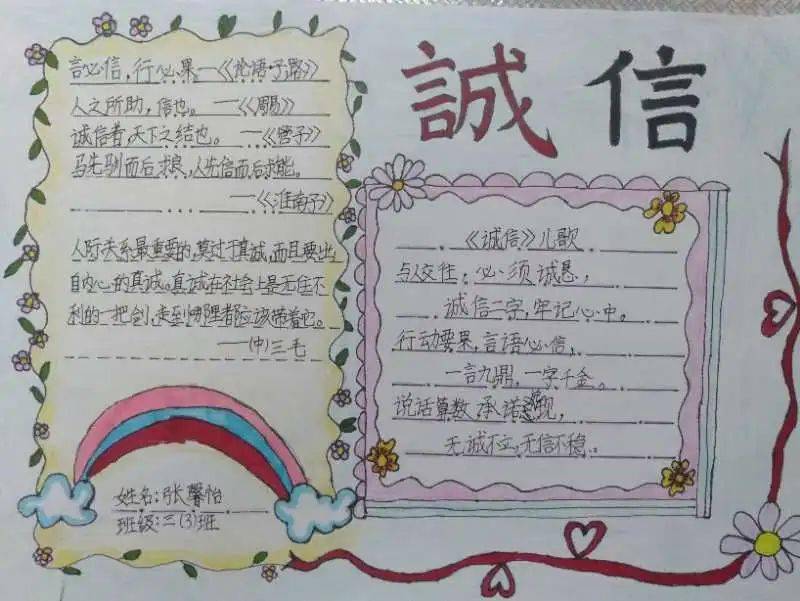 誠信
言必信，行必果。—《论语·子路》
人之所助，信也。—《周易》
诚信者，天下之结也。—《管子》
马先驯而后求良，人先信而后求能。
—《淮南子》
人际关系最重要的，莫过于真诚，而且要出
自内心的真诚。真诚在社会上是无往不
利的一把剑，走到哪里都应该带着它。
—(中)三毛
姓名：张馨怡
班级：三(3)班
《诚信》儿歌
与人交往：必须诚恳，
诚信二字，牢记心中。
行动要果，言语必信，
一言九鼎，一字千金。
说话算数，承诺现，
无诚不立，无信不稳。